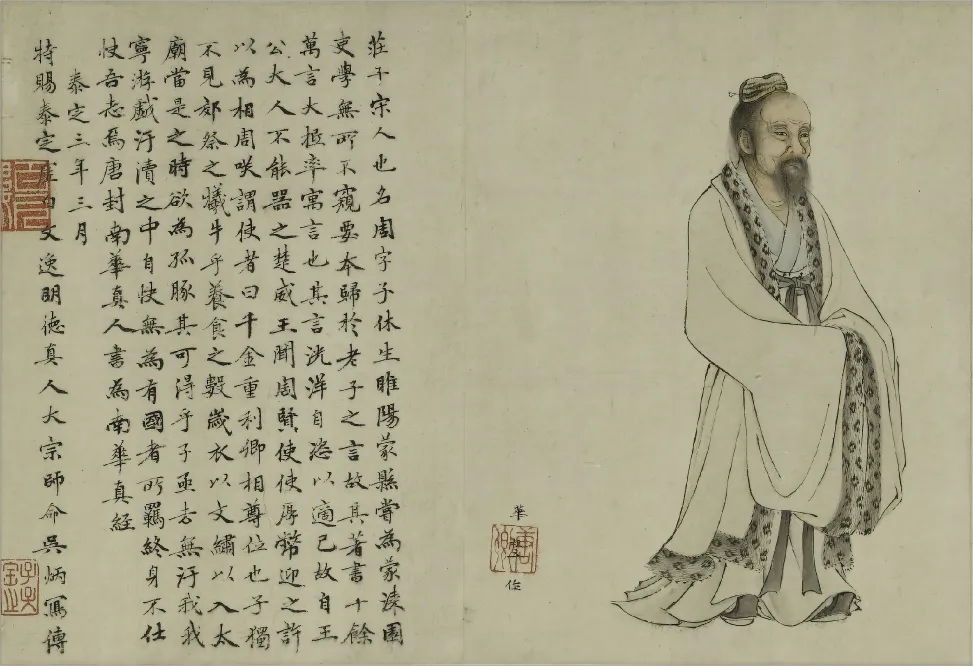 華祖立作
莊子宋人也名周字子休生睢陽蒙縣嘗為蒙漆園
吏學無所不窺要本歸於老子之言故其著書十餘
萬言大抵率寓言也其言洸洋自恣以適己故自王
公大人不能器之楚威王聞周賢使使厚幣迎之許
以為相周咲謂使者曰千金重利卿相尊位也子獨
不見郊祭之犧牛乎養食之數歲衣以文繡以入太
廟當是之時欲為孤豚其可得乎子亟去無汙我我
寧游戲汙瀆之中自快無為有國者所羈終身不仕
快吾志焉唐封南華真人書為南華真經
泰定三年三月
特賜泰定虛白文逸明徳真人大宗師命吳炳寫傳